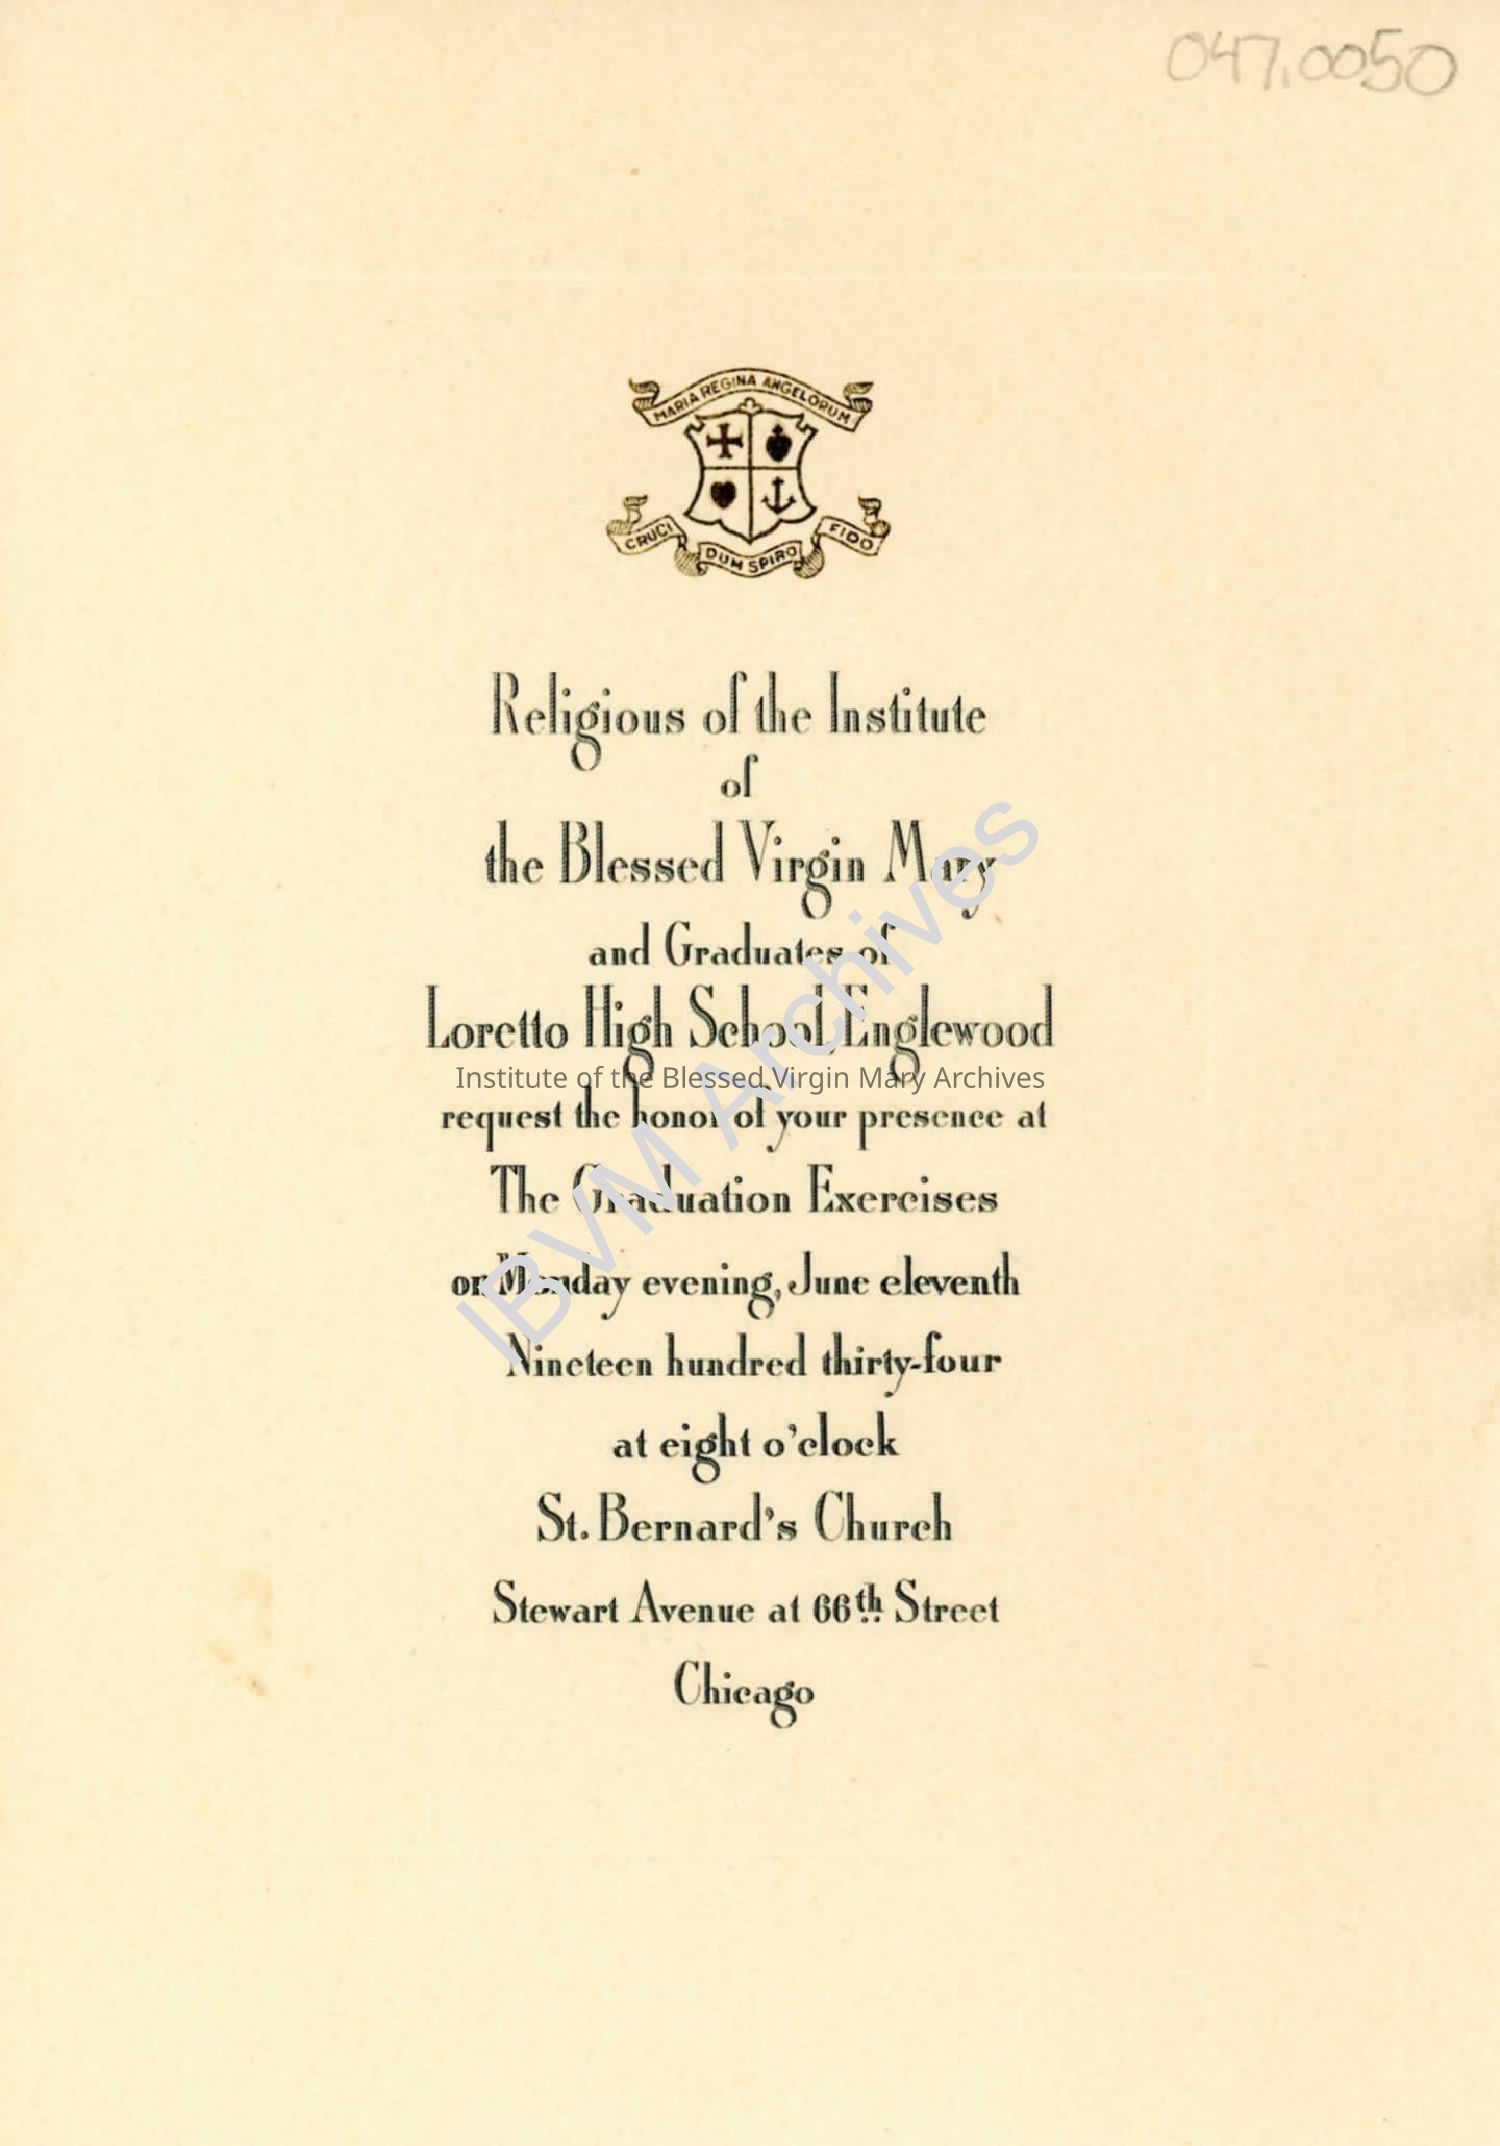 047.0050
MARIA REGINA ANGELORUM
CRUCI DUM SPIRO FIDO
Religious of the Institute
of
the Blessed Virgin Mary
and Graduates of
Loretto High School, Englewood
Institute of the Blessed Virgin Mary Archives
IBVM Archives
request the honor of your presence at
The Graduation Exercises
on Monday evening, June eleventh
Nineteen hundred thirty-four
at eight o'clock
St. Bernard's Church
Stewart Avenue at 66th Street
Chicago